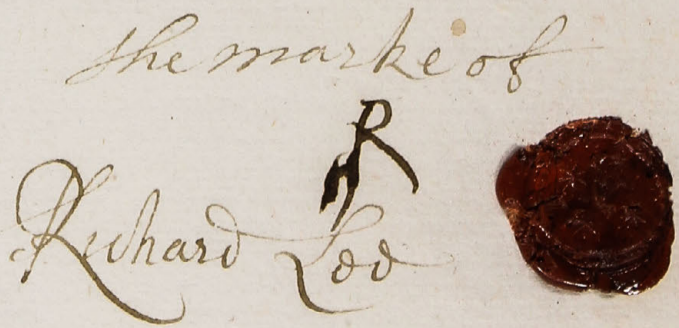 the marke of
R
Richard Lee